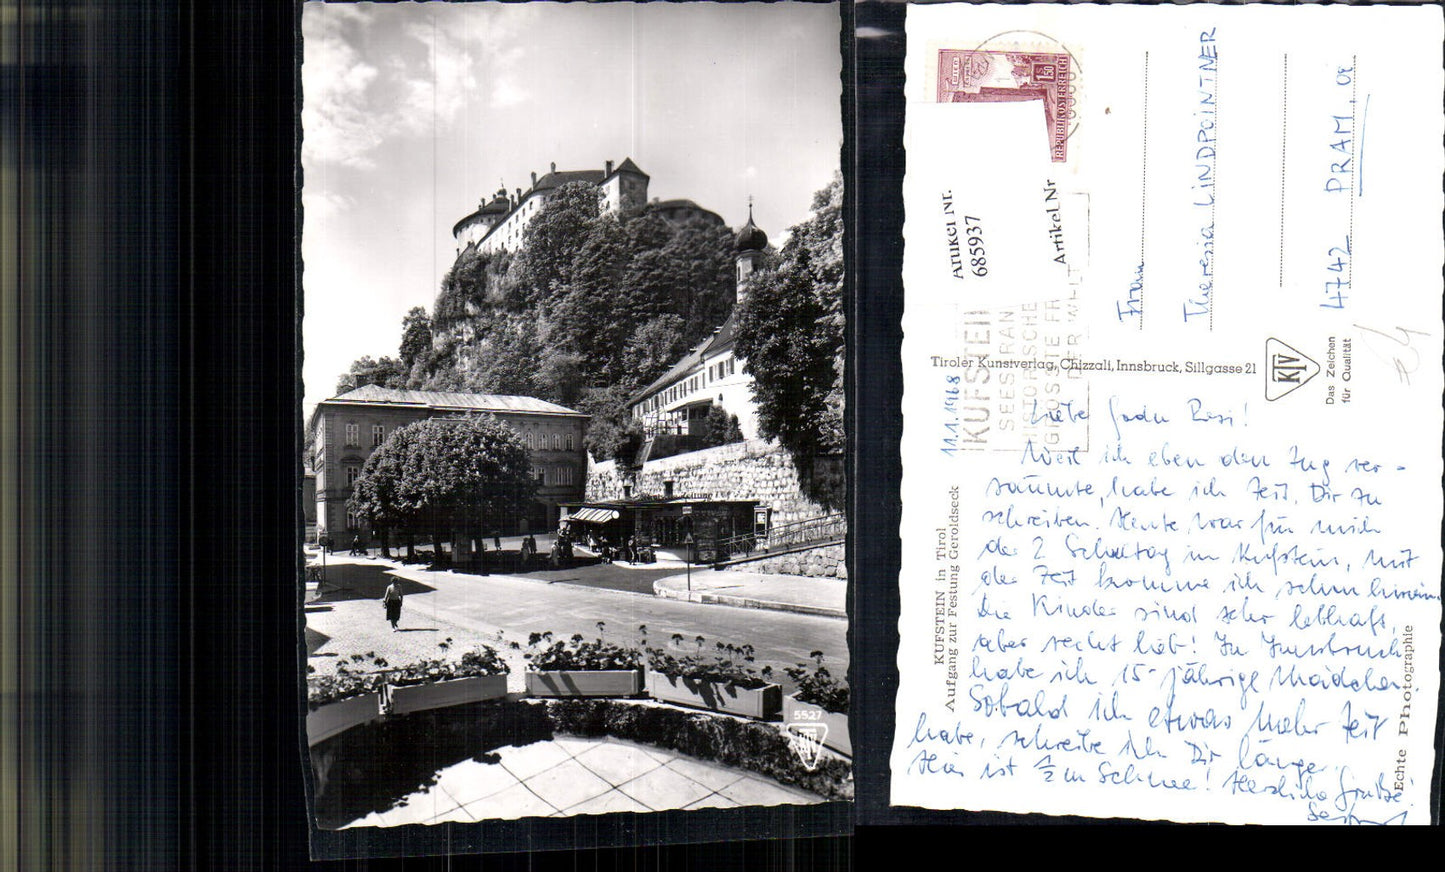 Zeitung
5527
KTV
REPUBLIK ÖSTERREICH
1.50
Artikel Nr.
685937
Artikel Nr
KUFSTEIN
HISTORISCHE
GRÖSSTE FR
DER WELT
Frau
Theresia LINDPOINTNER
4742 PRAM, OÖ
Tiroler Kunstverlag, Chizzali, Innsbruck, Sillgasse 21
KTV
Das Zeichen
für Qualität
KUFSTEIN in Tirol
Aufgang zur Festung Geroldseck
Echte Photographie
11.1.1968
Liebe Resi!
Weil ich eben den Zug ver-
säumte, habe ich Zeit, Dir zu
schreiben. Heute war für mich
der 2. Schultag in Kufstein, mit
der Zeit komme ich schon hinein.
Die Kinder sind sehr lebhaft,
aber recht lieb! In Innsbruck
habe ich 15-jährige Mädchen.
Sobald ich etwas mehr Zeit
habe, schreibe ich Dir länger.
Hier ist 1/2 m Schnee! Herzliche Grüße